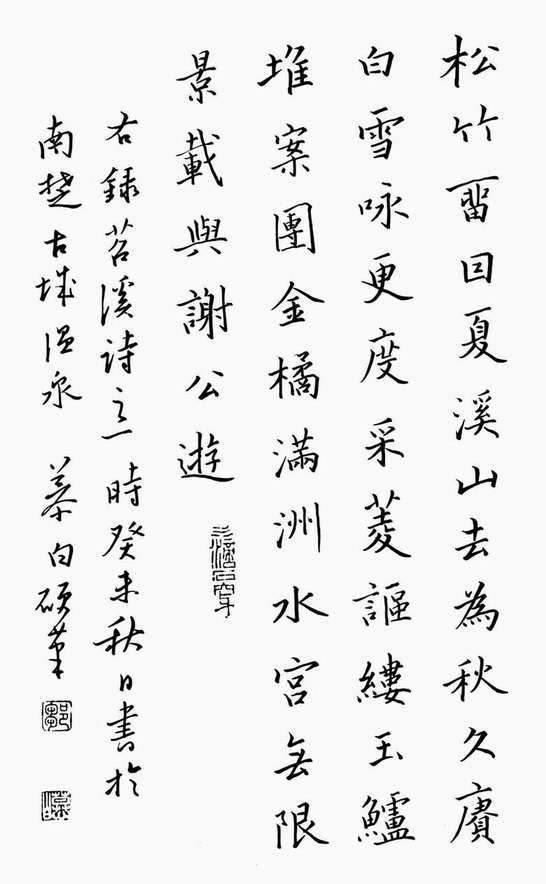 松竹畱因夏溪山去為秋久賡
白雪咏更度采菱謳縷玉鱸
堆案團金橘滿洲水宮無限
景載與謝公遊
右録苕溪詩之一時癸未秋日書於
南楚古城温泉 慕白硕筆